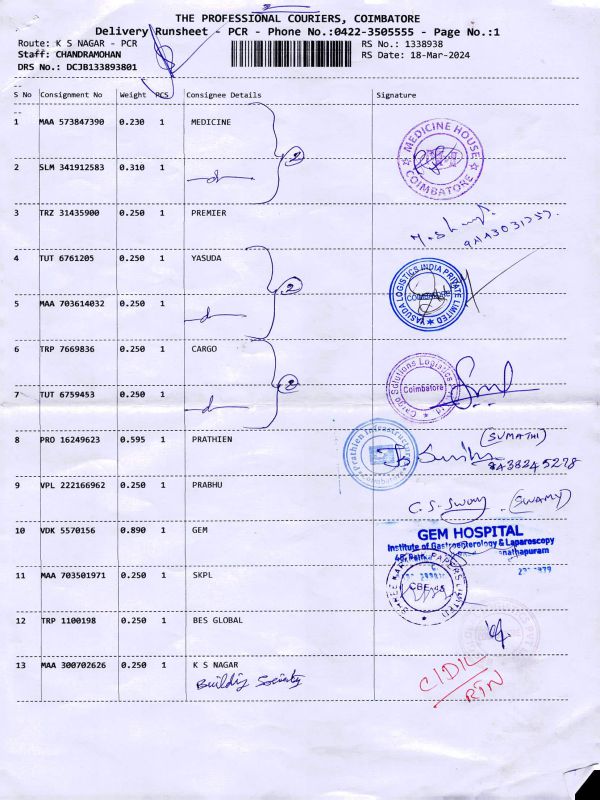 THE PROFESSIONAL COURIERS, COIMBATORE
Delivery Runsheet - PCR - Phone No.:0422-3505555 - Page No.:1
Route: K S NAGAR - PCR
RS No.: 1338938
Staff: CHANDRAMOHAN
RS Date: 18-Mar-2024
DRS No.: DCJB133893801
S No Consignment No Weight PCS Consignee Details Signature
1 MAA 573847390 0.230 1 MEDICINE
2
MEDICINE HOUSE
COIMBATORE
2 SLM 341912583 0.310 1
3 TRZ 31435900 0.250 1 PREMIER
4 TUT 6761205 0.250 1 YASUDA
2
YASUDA LOGISTICS INDIA PRIVATE LIMITED
COIMBATORE
5 MAA 703614032 0.250 1
6 TRP 7669836 0.250 1 CARGO
2
Cargo Solutions Logistics
Coimbatore
7 TUT 6759453 0.250 1
8 PRO 16249623 0.595 1 PRATHIEN
Prathien Infrastructure
Coimbatore
(SUMATHI)
9 VPL 222166962 0.250 1 PRABHU
C.S. Swamy (SWAMY)
10 VDK 5570156 0.890 1 GEM
GEM HOSPITAL
Institute of Gastroenterology & Laparoscopy
11 MAA 703501971 0.250 1 SKPL
CBE-45
12 TRP 1100198 0.250 1 BES GLOBAL
13 MAA 300702626 0.250 1 K S NAGAR
Building Society
CIDIL
RTN